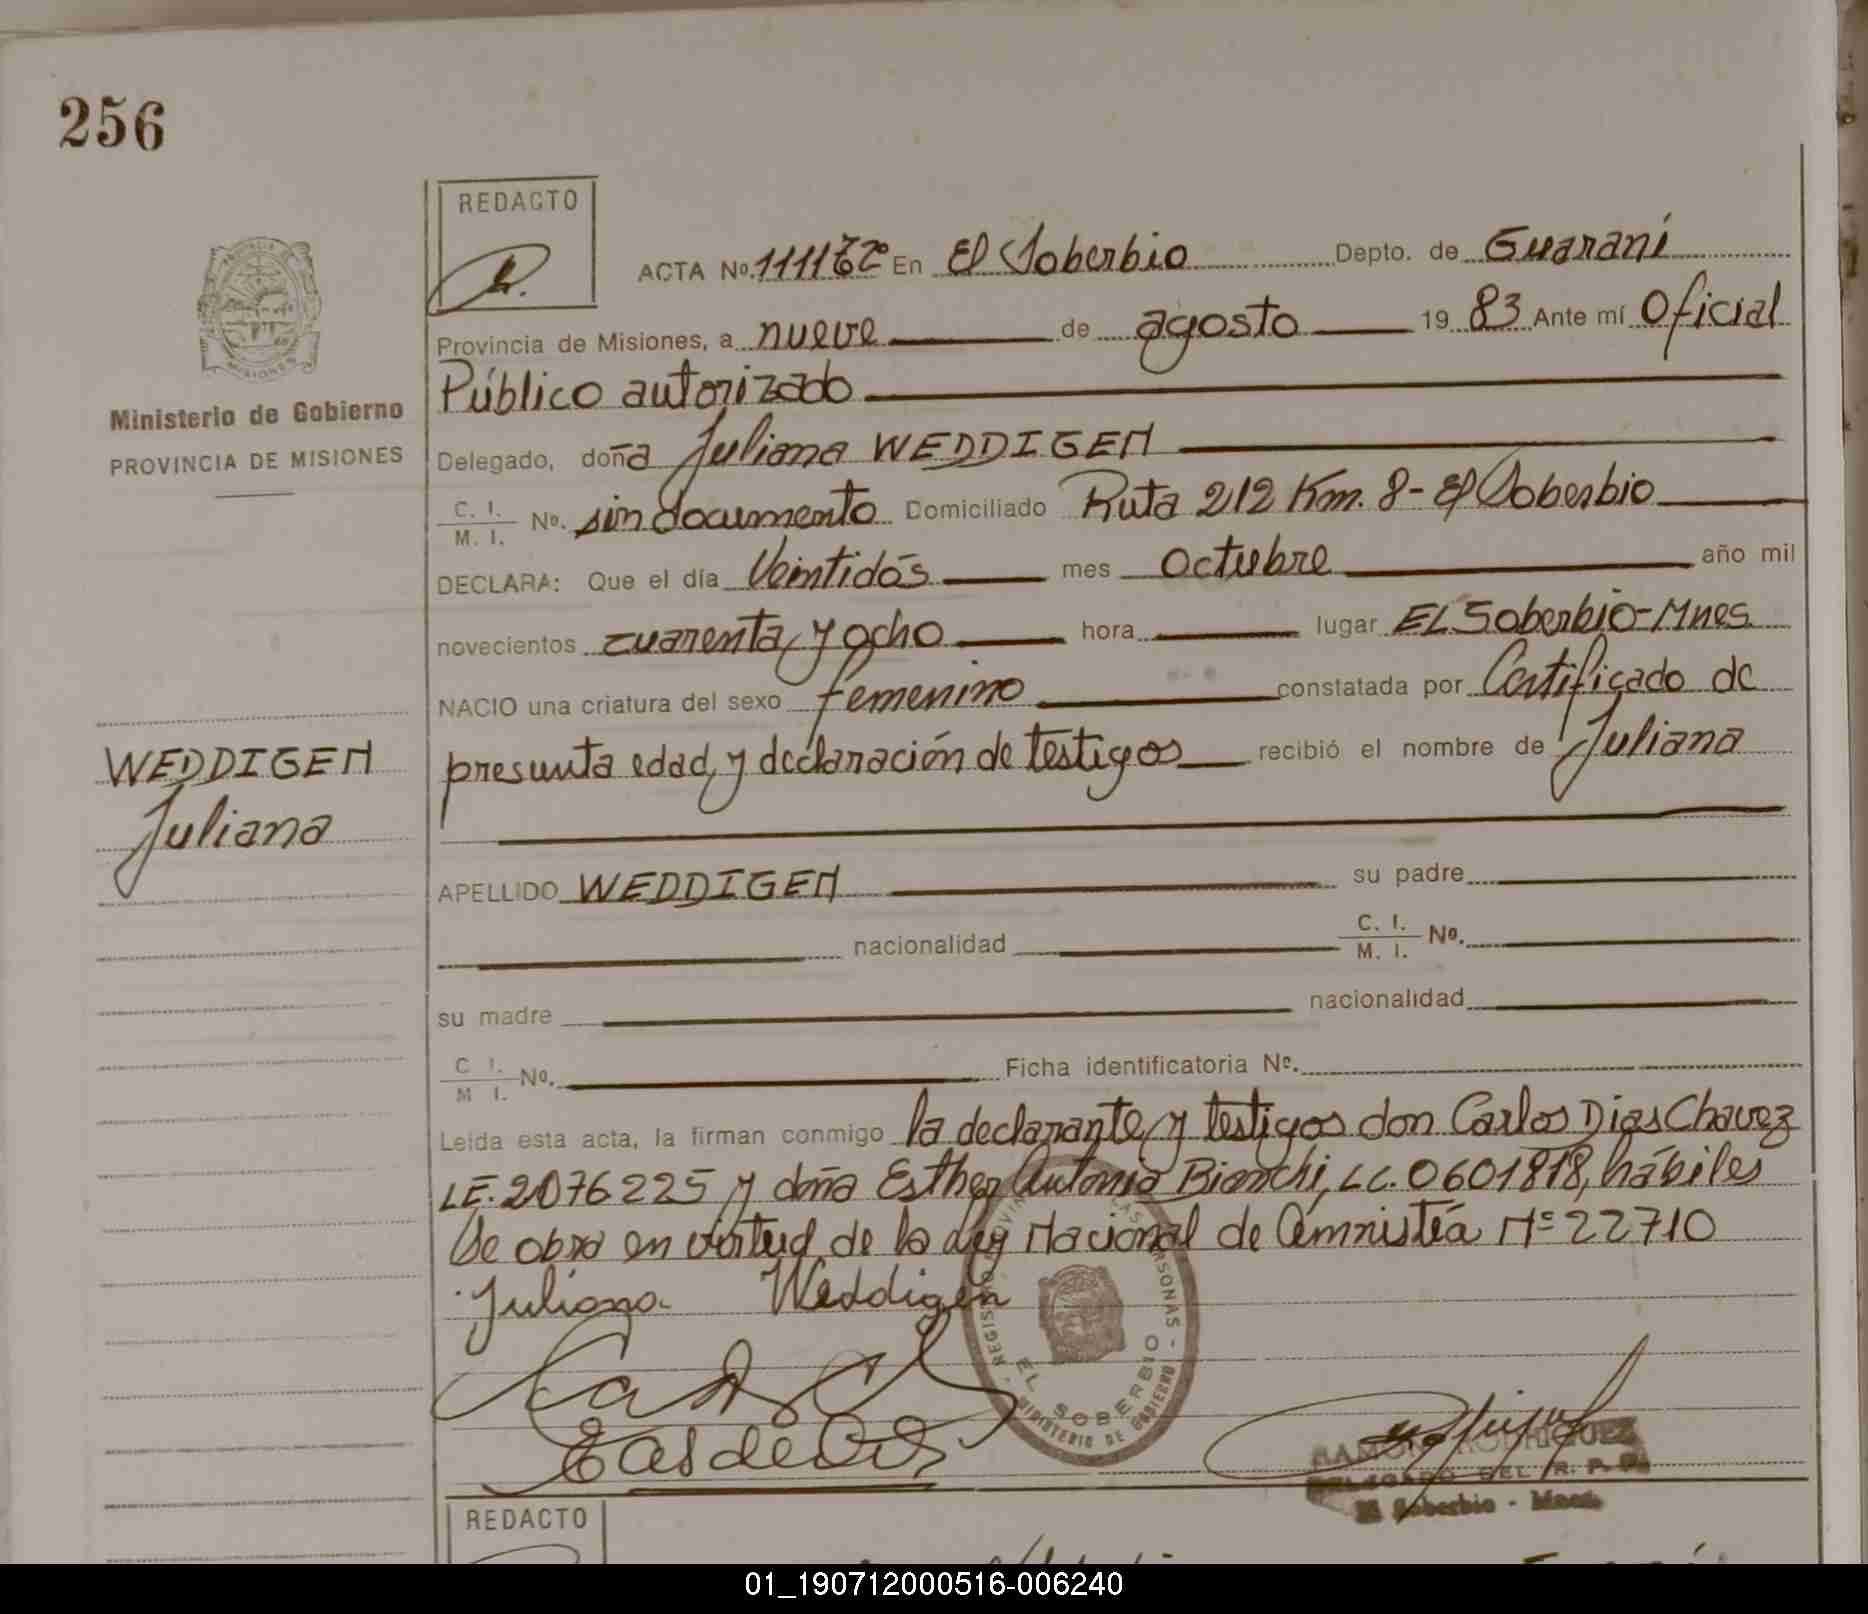 256
REDACTO
ACTA Nº. 1111 Tº En El Soberbio Depto. de Guaraní
Provincia de Misiones, a nueve de agosto 19 83 Ante mí Oficial
Público autorizado
Ministerio de Gobierno
PROVINCIA DE MISIONES
Delegado, doña Juliana WEDDIGEN
C. I.
M. I. Nº. sin documento Domiciliado Ruta 212 Km. 8 - El Soberbio
DECLARA: Que el día Veintidós mes octubre año mil
novecientos cuarenta y ocho hora lugar EL Soberbio-Mnes
NACIO una criatura del sexo femenino constatada por Certificado de
presunta edad y declaración de testigos recibió el nombre de Juliana
WEDDIGEN
Juliana
APELLIDO WEDDIGEN su padre
nacionalidad C. I.
M. I. Nº.
su madre nacionalidad
C. I.
M. I. Nº. Ficha identificatoria Nº.
Leída esta acta, la firman conmigo la declarante y testigos don Carlos Dias Chavez
LE. 2076225 y doña Esther Antonia Bianchi, LC. 0601818, hábiles
Se obra en virtud de la Ley Nacional de Amnistía Nº 22710
Juliana Weddigen
EL SOBERBIO
MINISTERIO DE GOBIERNO
RAMON RODRIGUEZ
DELEGADO DEL R. P. P.
El Soberbio - Mnes.
REDACTO
01_190712000516-006240